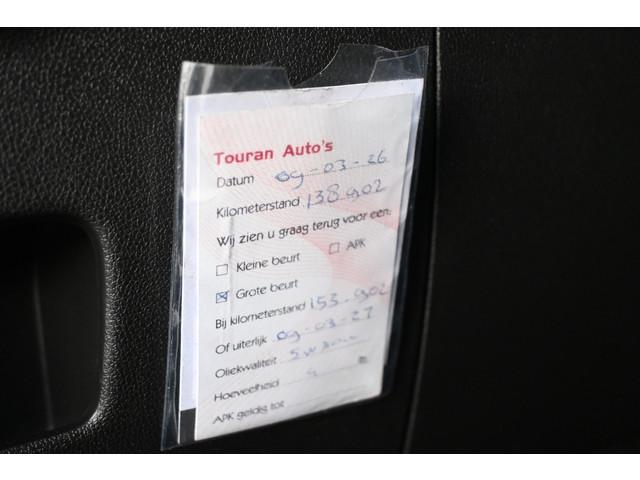 Touran Auto's
Datum 09-03-26
Kilometerstand 138902
Wij zien u graag terug voor een:
Kleine beurt APK
Grote beurt
Bij kilometerstand 153-902
Of uiterlijk 09-03-27
Oliekwaliteit 5w
Hoeveelheid
APK geldig tot